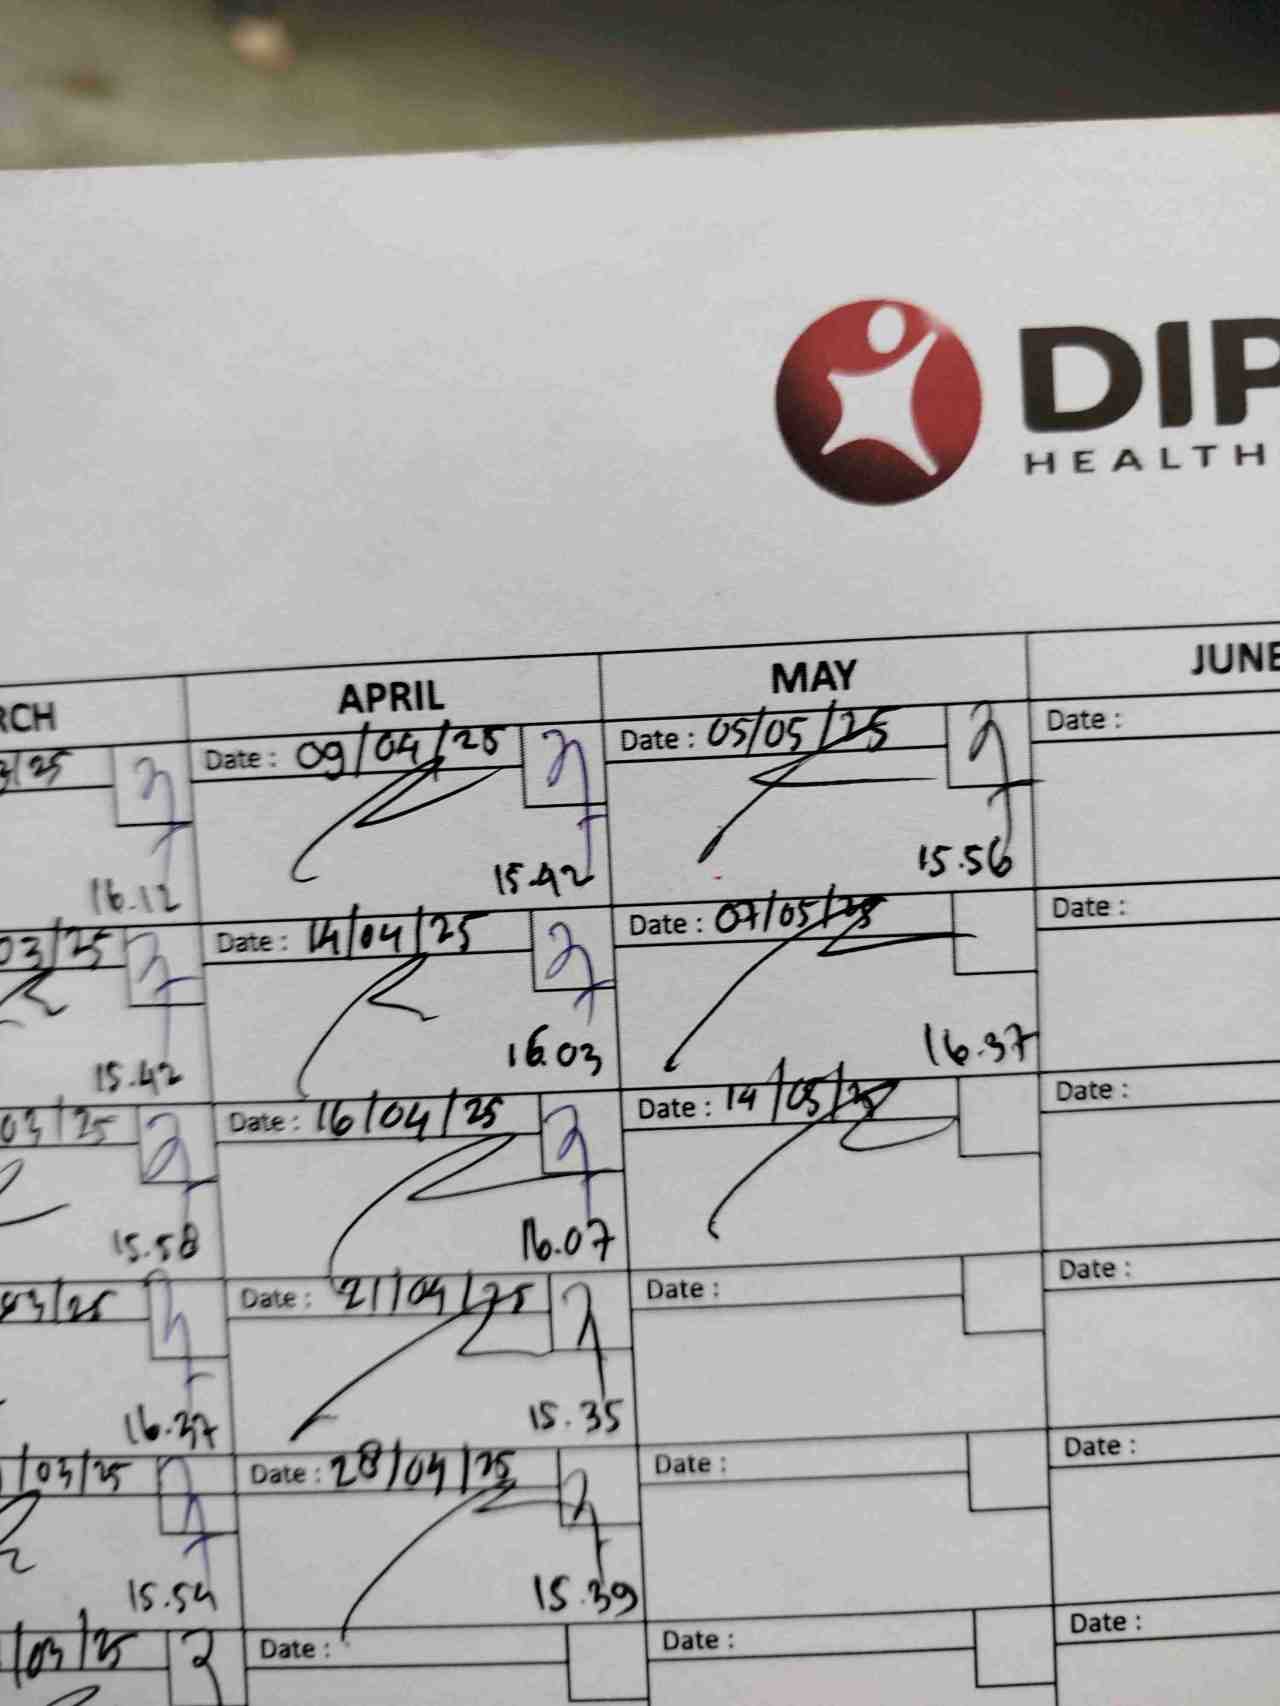 DIP
HEALTH
RCH APRIL MAY JUNE
3/25 Date : 09/04/25 Date : 05/05/25 Date :
16.12 15.42 15.56
03/25 Date : 14/04/25 Date : 07/05/25 Date :
15.42 16.03 16.37
03/25 Date : 16/04/25 Date : 14/05/25 Date :
15.58 16.07
03/25 Date : 21/04/25 Date : Date :
16.37 15.35
/03/25 Date : 28/04/25 Date : Date :
15.54 15.39
/03/25 Date : Date : Date :